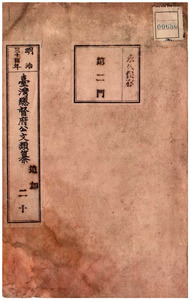 明治
三十四年
臺灣總督府公文類纂
追加
二十
永久保存
第二門